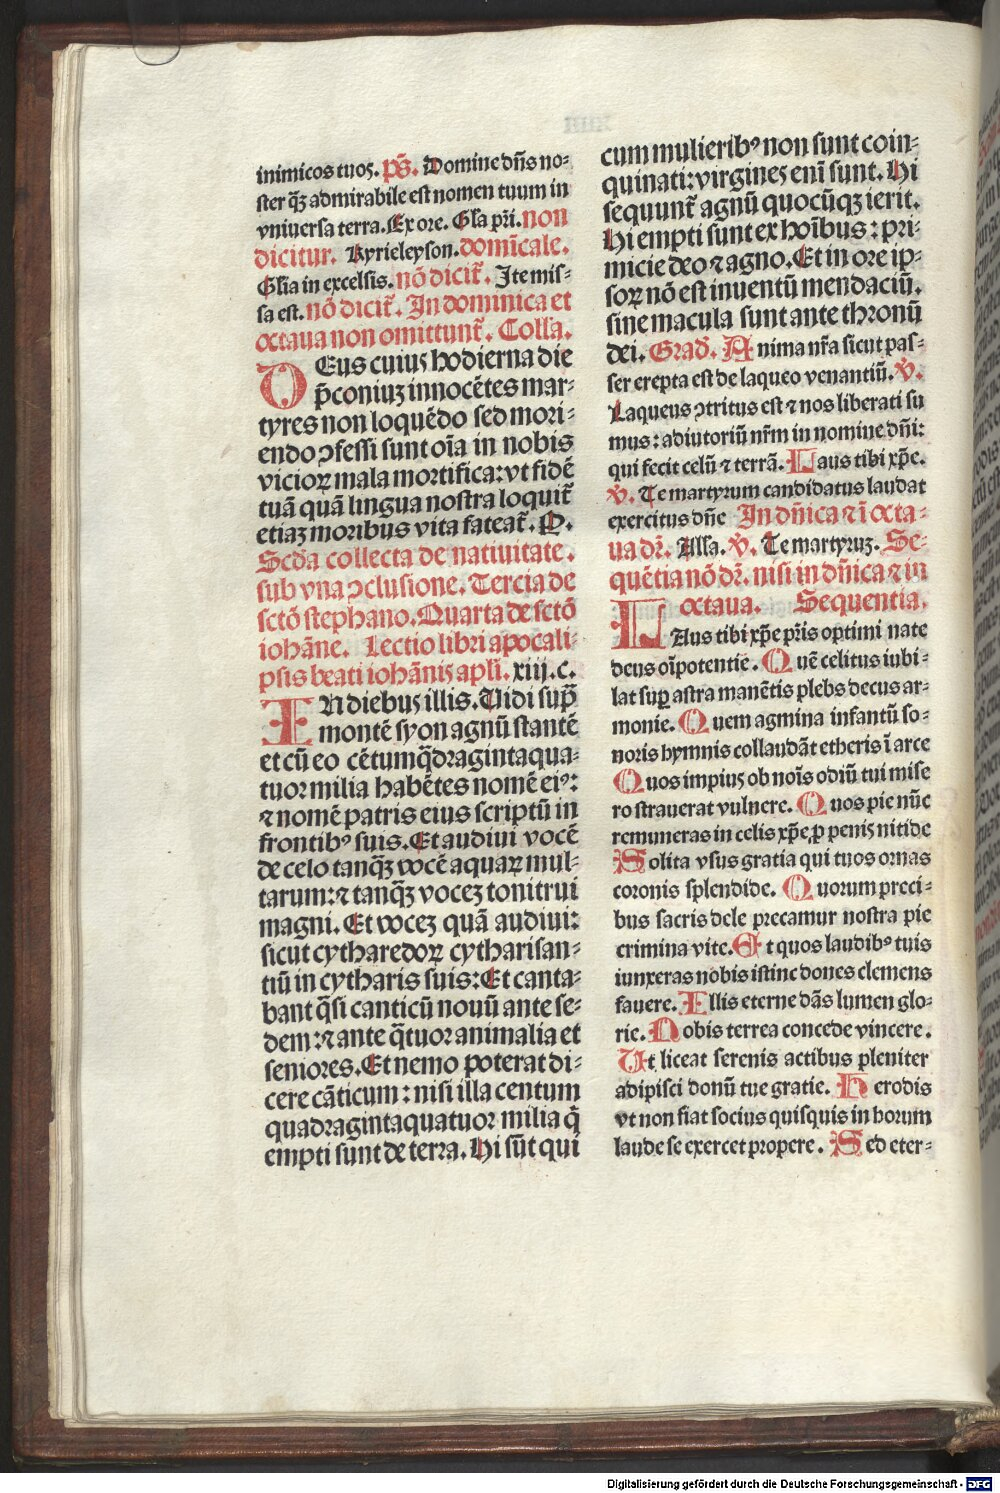 inimicos tuos. ps̄. Domine dn̄s no-
ster qꝫ admirabile est nomen tuum in
vniuersa terra. Ex ore. Gl̄a pr̄i. non
dicitur. Kyrieleyson. domīcale.
Gl̄ia in excelsis. nō dicit᷑. Ite mis-
sa est. nō dicit᷑. In dominica et
octaua non omittunt᷑. Coll̄a.
DEus cuius hodierna die
p̄coniuꝫ innocētes mar-
tyres non loquēdo sed mori-
endo ꝯfessi sunt oīa in nobis
vicioꝝ mala mortifica: vt fidē
tuā quā lingua nostra loquit᷑
etiaꝫ moribus vita fateat᷑. P.
Scd̄a collecta de natiuitate.
sub vna ꝯclusione. Tercia de
sctō stephano. Quarta de sctō
iohāne. Lectio libri apocali-
psis beati iohānis apl̄i. xiij. c.
IN diebus illis. Vidi sup̄
montē syon agnū stantē
et cū eo cētumq̄dragintaqua-
tuor milia habētes nomē eiꝰ:
⁊ nomē patris eius scriptū in
frontibꝰ suis. Et audiui vocē
de celo tanqꝫ vocē aquaꝝ mul-
tarum: ⁊ tanqꝫ voceꝫ tonitrui
magni. Et voceꝫ quā audiui:
sicut cytharedoꝝ cytharisan-
tiū in cytharis suis: Et canta-
bant q̄si canticū nouū ante se-
dem: ⁊ ante q̄tuor animalia et
seniores. Et nemo poterat di-
cere cāticum: nisi illa centum
quadragintaquatuor milia q̄
empti sunt de terra. Hi sūt qui
cum mulieribꝰ non sunt coin-
quinati: virgines enī sunt. Hi
sequunt᷑ agnū quocūqꝫ ierit.
Hi empti sunt ex hoībus: pri-
micie deo ⁊ agno. Et in ore ip-
soꝝ nō est inuentū mendaciū.
sine macula sunt ante thronū
dei. Grad̄. Anima nr̄a sicut pas-
ser erepta est de laqueo venantiū. v̄.
Laqueus ꝯtritus est ⁊ nos liberati su
mus: adiutoriū nr̄m in nomine dn̄i:
qui fecit celū ⁊ terrā. Laus tibi xp̄e.
v̄. Te martyrum candidatus laudat
exercitus dn̄e In dn̄ica ⁊ ī octa-
ua dr̄. All̄a. v̄. Te martyruꝫ. Se-
quētia nō dr̄. nisi in dn̄ica ⁊ in
octaua. Sequentia.
LAus tibi xp̄e pr̄is optimi nate
deus oīpotentie. Quē celitus iubi-
lat suꝑ astra manētis plebs decus ar-
monie. Quem agmina infantū so-
noris hymnis collaudāt etheris ī arce
Quos impius ob noīs odiū tui mise
ro strauerat vulnere. Quos pie nūc
remuneras in celis xp̄e, ꝓ penis nitide
Solita vsus gratia qui tuos ornas
coronis splendide. Quorum preci-
bus sacris dele precamur nostra pie
crimina vite. Et quos laudibꝰ tuis
iunxeras nobis istinc dones clemens
fauere. Illis eterne dās lumen glo-
rie. Nobis terrea concede vincere.
Ut liceat serenis actibus pleniter
adipisci donū tue gratie. Herodis
vt non fiat socius quisquis in horum
laude se exercet propere. Sed eter-
Digitalisierung gefördert durch die Deutsche Forschungsgemeinschaft - DFG